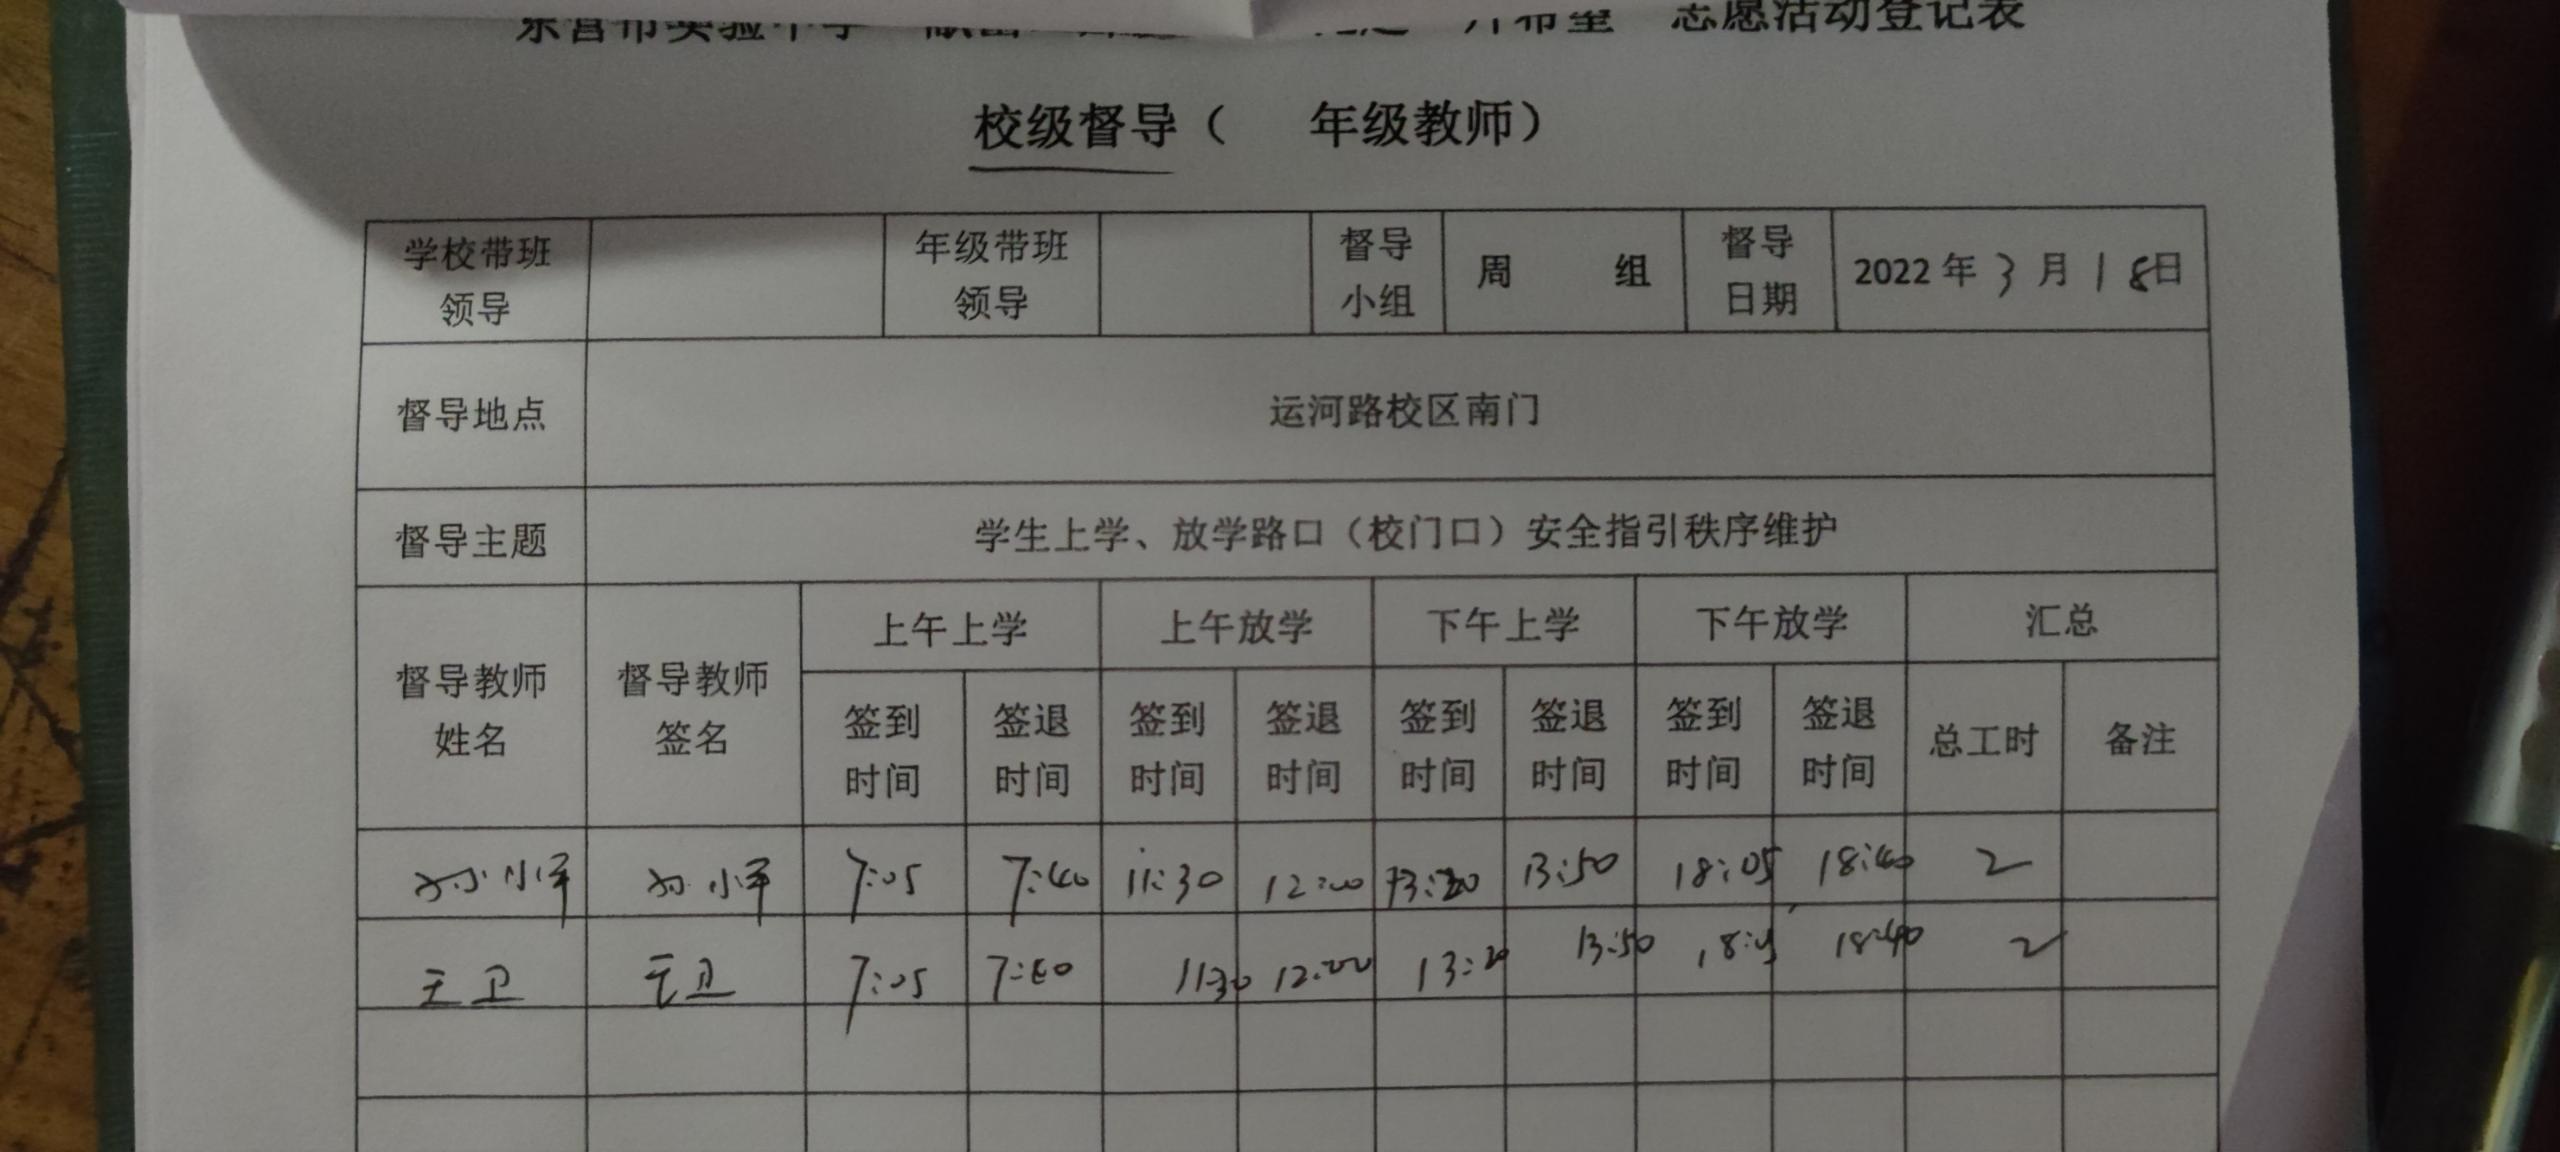 东营市实验中学 志愿活动登记表
校级督导（ 年级教师）
学校带班领导 年级带班领导 督导小组 周 组 督导日期 2022年3月18日
督导地点 运河路校区南门
督导主题 学生上学、放学路口（校门口）安全指引秩序维护
督导教师姓名 督导教师签名 上午上学 上午放学 下午上学 下午放学 汇总
签到时间 签退时间 签到时间 签退时间 签到时间 签退时间 签到时间 签退时间 总工时 备注
孙小军 孙小军 7:05 7:40 11:30 12:00 13:20 13:50 18:05 18:40 2
王卫 王卫 7:05 7:40 11:30 12:00 13:20 13:50 18:40 2